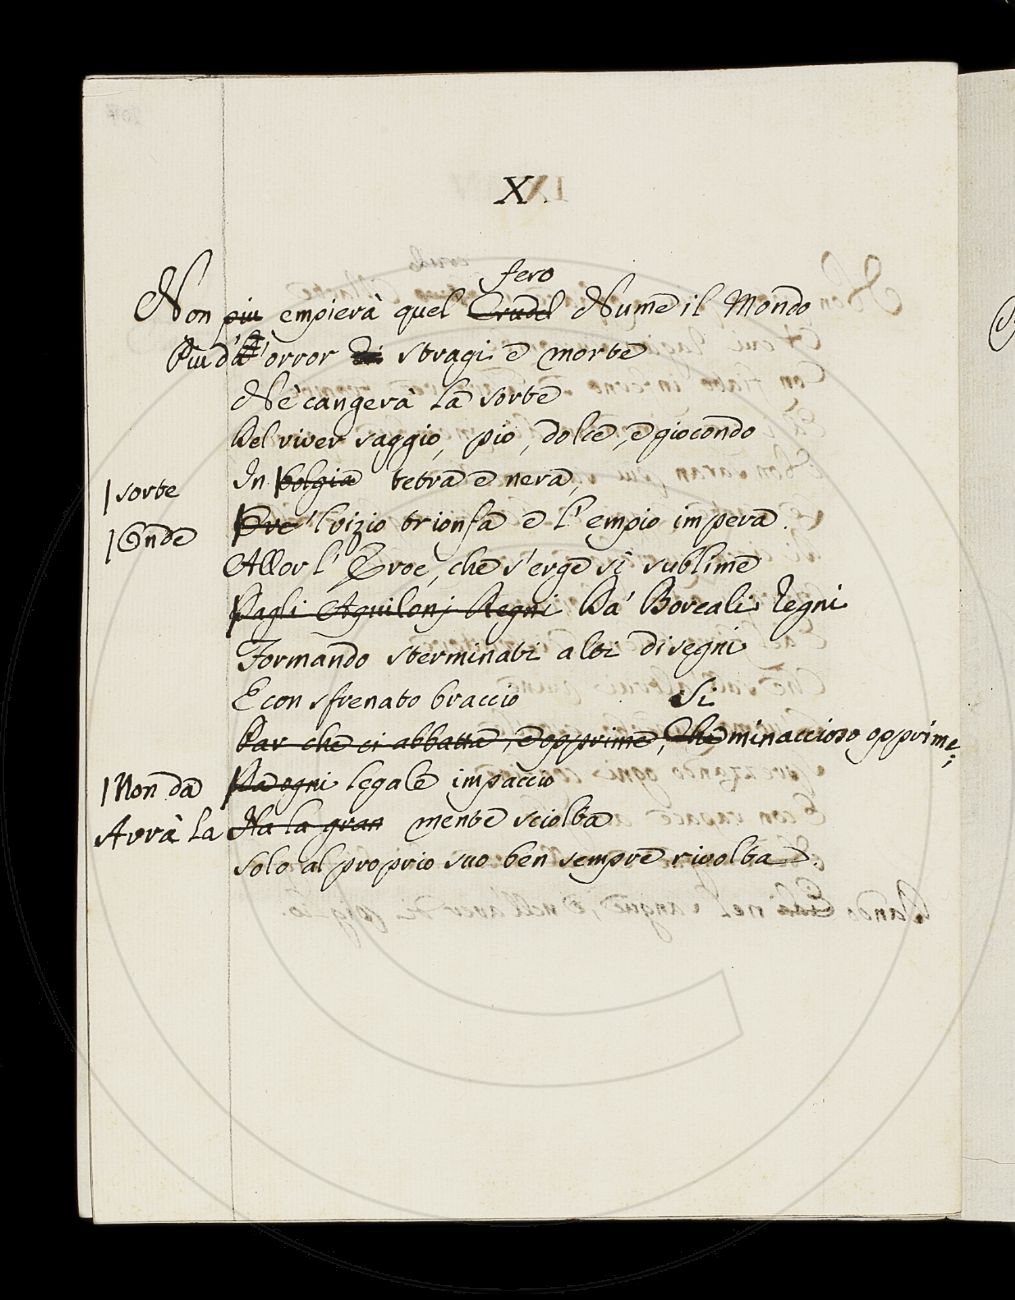 X
fero
Non piu empierà quel Crudel Nume il Mondo
Piu d'orror di stragi e morte
Nè cangerà la sorte
Del viver saggio, pio, dolce, e giocondo
sorte In bolgia tetra e nera,
Onde Ove 'l vizio trionfa e l'empio impera.
Allor l'Eroe, che s'erge sì sublime
Dagli Aquilonj Regni Da' Boreali regni
Formando sterminati alti disegni
E con sfrenato braccio
Si
Par che ci abbatte, ed opprime, Che minaccioso opprime;
Non da Da ogni legale impaccio
Avrà la Ha la gran mente sciolta
Solo al proprio suo ben sempre rivolta.